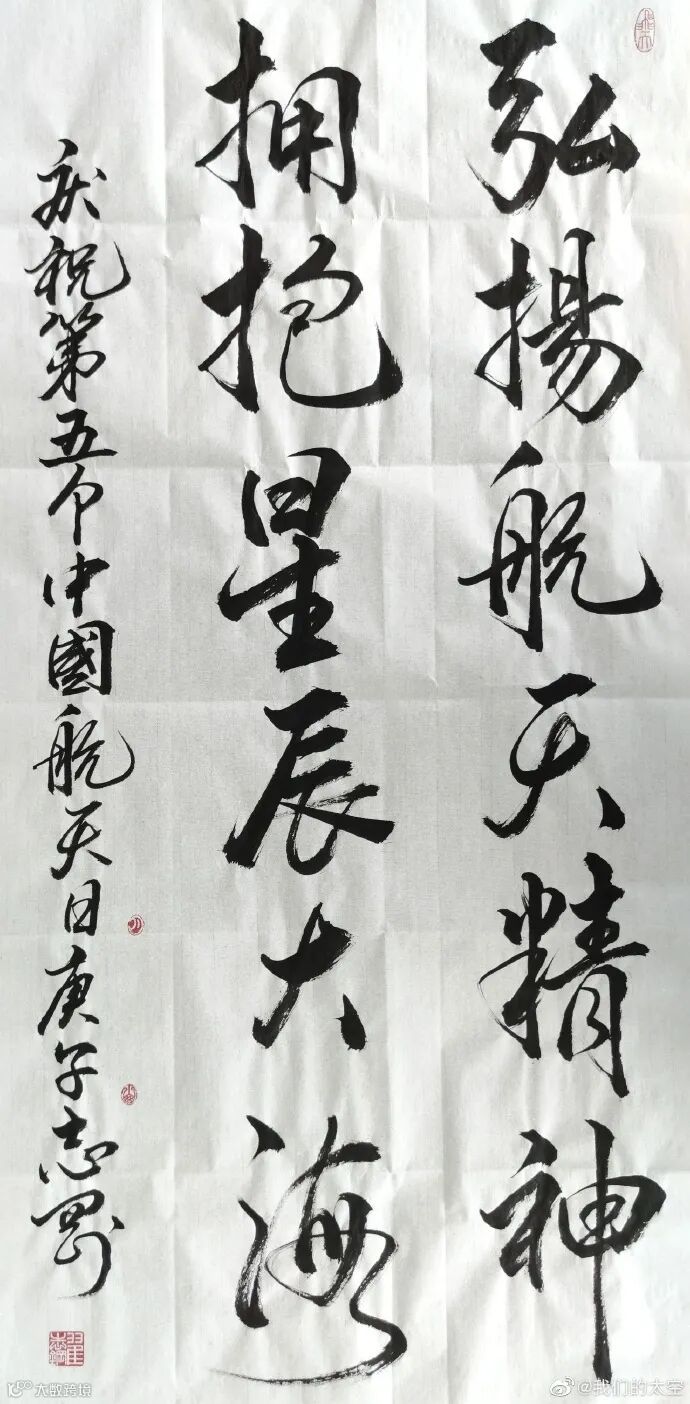 弘揚航天精神
拥抱星辰大海
庆祝第五个中國航天日庚子志罡
大数跨境
@我们的太空